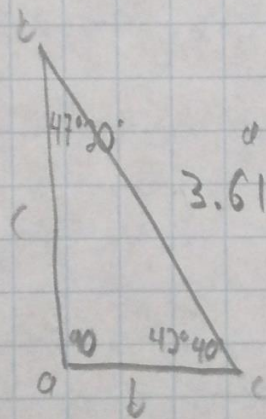 b
47°20'
a
3.61
c
90
42°40
a
b
c